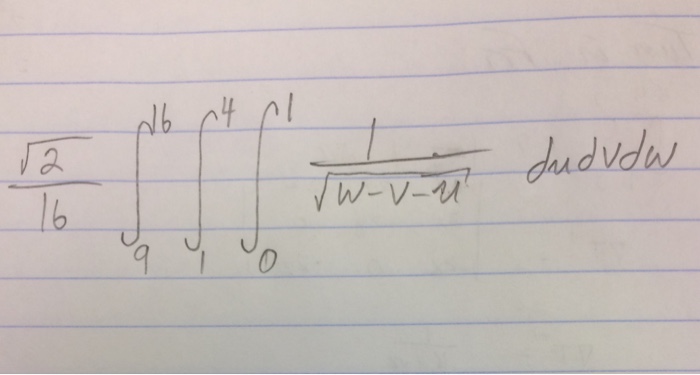 √2/16 ∫₉¹⁶ ∫₁⁴ ∫₀¹ 1/√(w-v-u) du dv dw